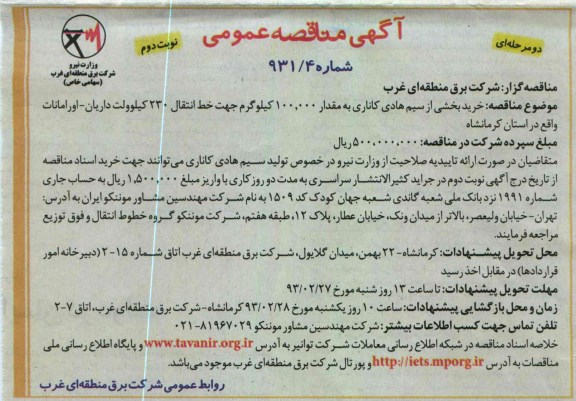 آگهی مناقصه عمومی
دو مرحله‌ای
نوبت دوم
شماره ۹۳۱/۴
وزارت نیرو
شرکت برق منطقه‌ای غرب
(سهامی خاص)
مناقصه‌گزار: شرکت برق منطقه‌ای غرب
موضوع مناقصه: خرید بخشی از سیم هادی کاناری به مقدار ۱۰۰,۰۰۰ کیلوگرم جهت خط انتقال ۲۳۰ کیلوولت داریان-اورامانات
واقع در استان کرمانشاه
مبلغ سپرده شرکت در مناقصه: ۵۰۰,۰۰۰,۰۰۰ ریال
متقاضیان در صورت ارائه تاییدیه صلاحیت از وزارت نیرو در خصوص تولید سیم هادی کاناری می‌توانند جهت خرید اسناد مناقصه
از تاریخ درج آگهی نوبت دوم در جراید کثیرالانتشار سراسری به مدت دو روز کاری با واریز مبلغ ۱,۵۰۰,۰۰۰ ریال به حساب جاری
شماره ۱۹۹۱ نزد بانک ملی شعبه گاندی شعبه جهان کودک کد ۱۵۰۹ به نام شرکت مهندسین مشاور موننکو ایران به آدرس:
تهران-خیابان ولیعصر، بالاتر از میدان ونک، خیابان عطار، پلاک ۱۲، طبقه هفتم، شرکت موننکو گروه خطوط انتقال و فوق توزیع
مراجعه فرمایند.
محل تحویل پیشنهادات: کرمانشاه- ۲۲ بهمن، میدان گلایول، شرکت برق منطقه‌ای غرب اتاق شماره ۱۵-۲ (دبیرخانه امور
قراردادها) در مقابل اخذ رسید
مهلت تحویل پیشنهادات: تا ساعت ۱۳ روز شنبه مورخ ۹۳/۰۲/۲۷
زمان و محل بازگشایی پیشنهادات: ساعت ۱۰ روز یکشنبه مورخ ۹۳/۰۲/۲۸ کرمانشاه-شرکت برق منطقه‌ای غرب، اتاق ۷-۲
تلفن تماس جهت کسب اطلاعات بیشتر: شرکت مهندسین مشاور موننکو ۸۱۹۶۷۰۲۹-۰۲۱
خلاصه اسناد مناقصه در شبکه اطلاع رسانی معاملات شرکت توانیر به آدرس www.tavanir.org.ir و پایگاه اطلاع رسانی ملی
مناقصات به آدرس http://iets.mporg.ir و پورتال شرکت برق منطقه‌ای غرب موجود می‌باشد.
روابط عمومی شرکت برق منطقه‌ای غرب